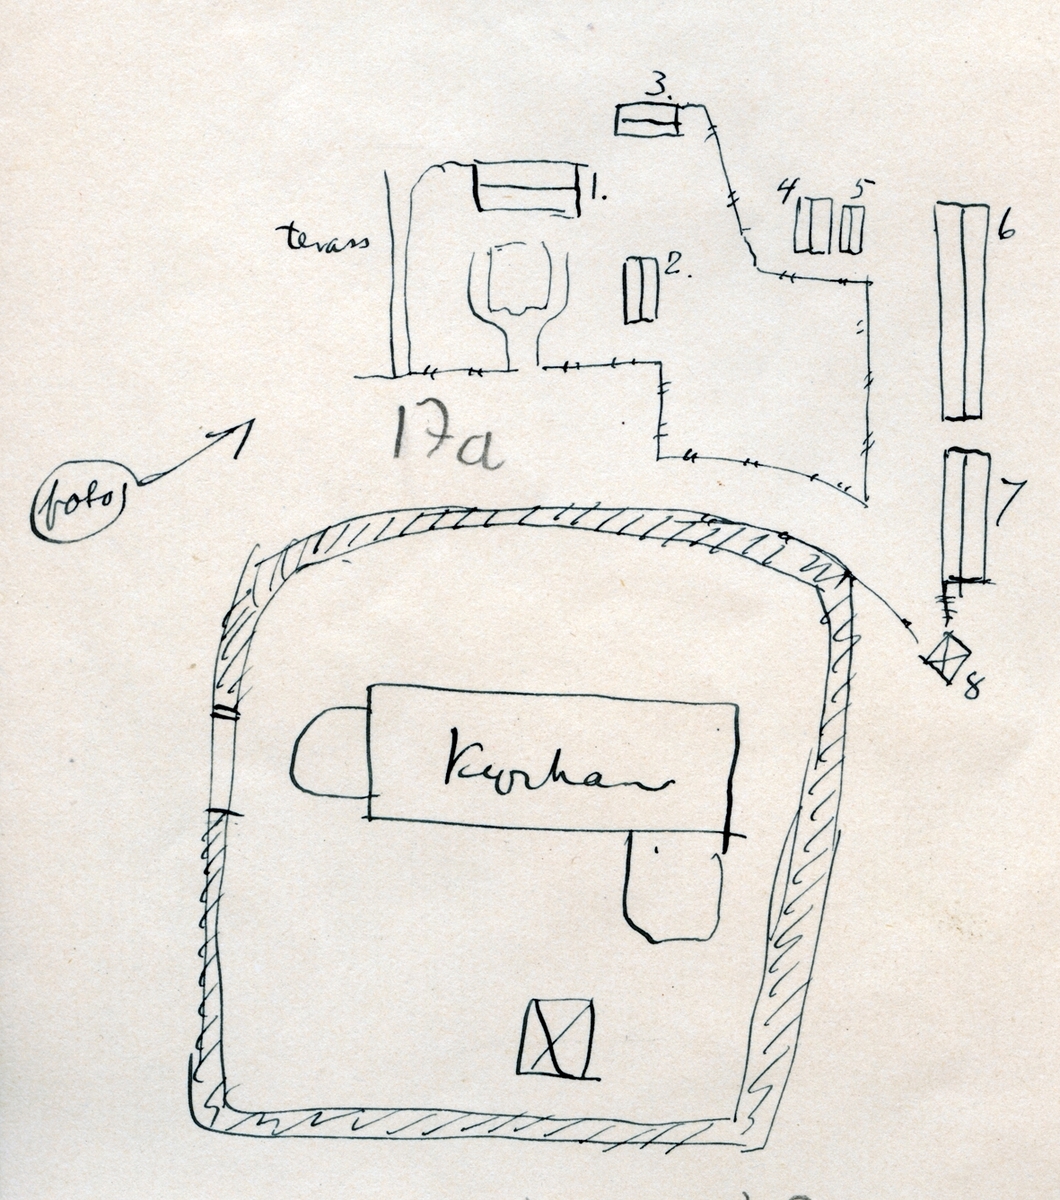 3.
1.
4
5
6
terass
2.
17a
foto
7
8
Kyrkan